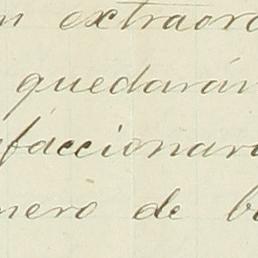 n extraord
quedarán
faccionara
nero de ba